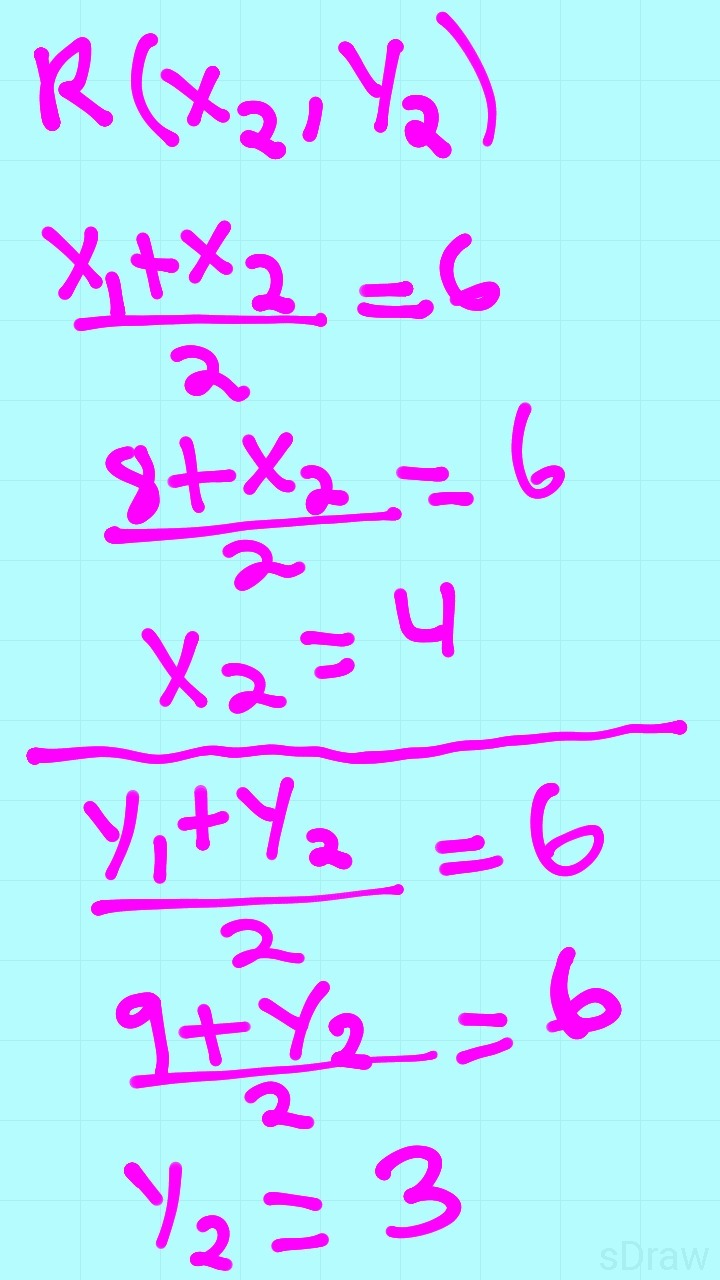 R(x₂, y₂)
(x₁+x₂)/2 = 6
(8+x₂)/2 = 6
x₂ = 4
(y₁+y₂)/2 = 6
(9+y₂)/2 = 6
y₂ = 3
sDraw